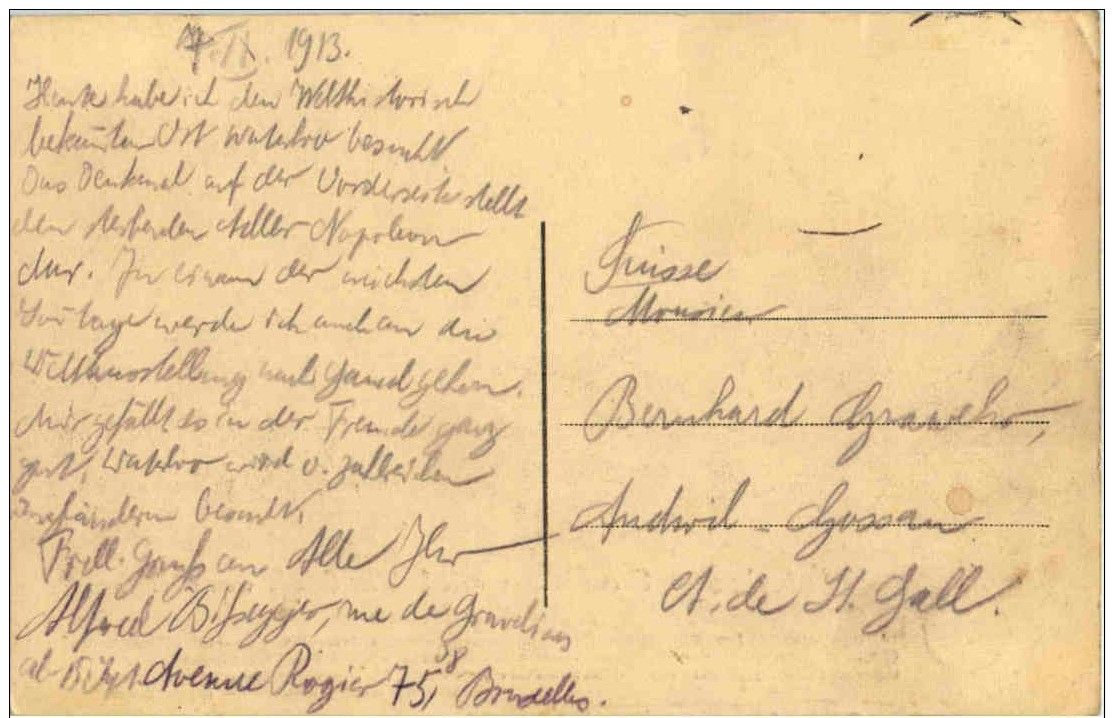 7. IX. 1913.
Heute habe ich den Welthistorisch
bekannten Ort Waterloo besucht.
Das Denkmal auf der Vorderseite stellt
den sterbenden Adler Napoleon
dar. In einem der nächsten
Sontage werde ich auch an die
Weltausstellung nach Gand gehen.
Mir gefällt es in der Fremde ganz
gut, Waterloo wird v. zallreichen
besucht.
Frdl. Gruss an Alle Ihr
Alfred rue de
ab 15. Sept Avenue Rogier 75, Bruxelles.
38
Suisse
Monsieur
Bernhard
Andwil - Gossau
Ct. de St. Gall.